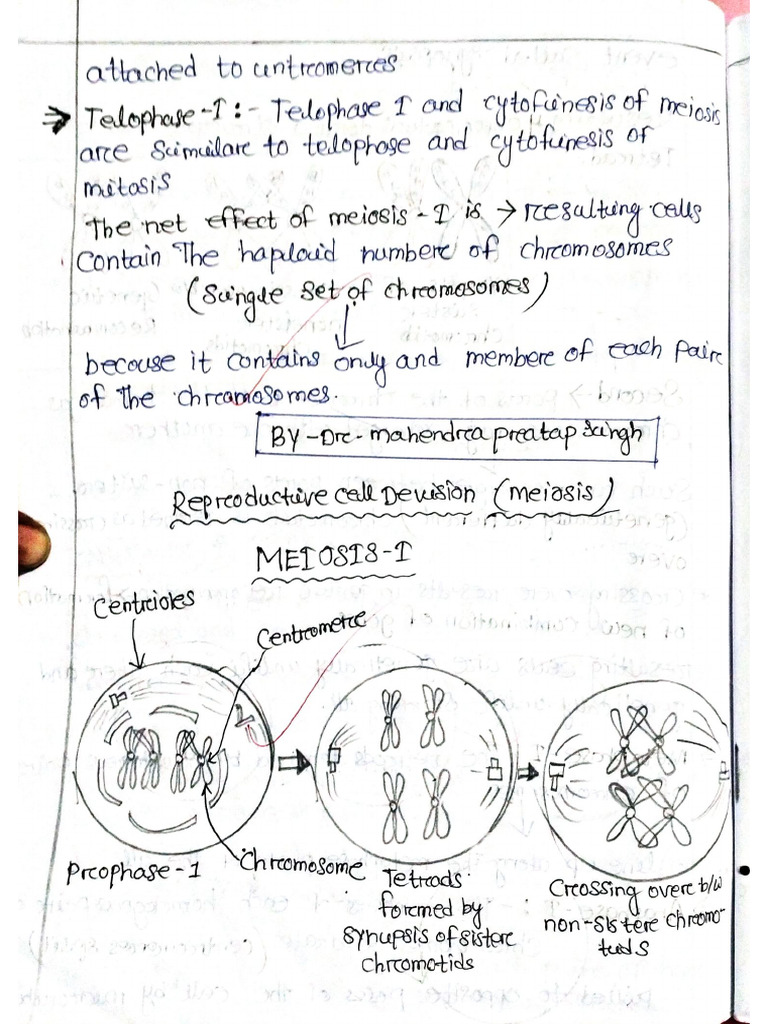 attached to centromeres
⇒ Telophase-I :- Telophase I and cytokinesis of meiosis
are similare to telophase and cytokinesis of
mitosis
The net effect of meiosis-I is → resulting cells
Contain The haploid numbere of chromosomes
(Single set of chromosomes)
becouse it contains only and membere of each paire
of the chromosomes.
BY-Dr-mahendra pratap singh
Reproductive cell Devision (meiosis)
MEIOSIS-I
Centrioles
Centromere
Prophase-1
Chromosome
Tetrads
formed by
synupsis of sistere
chromotids
Crossing overe b/w
non-sistere chromo-
tids